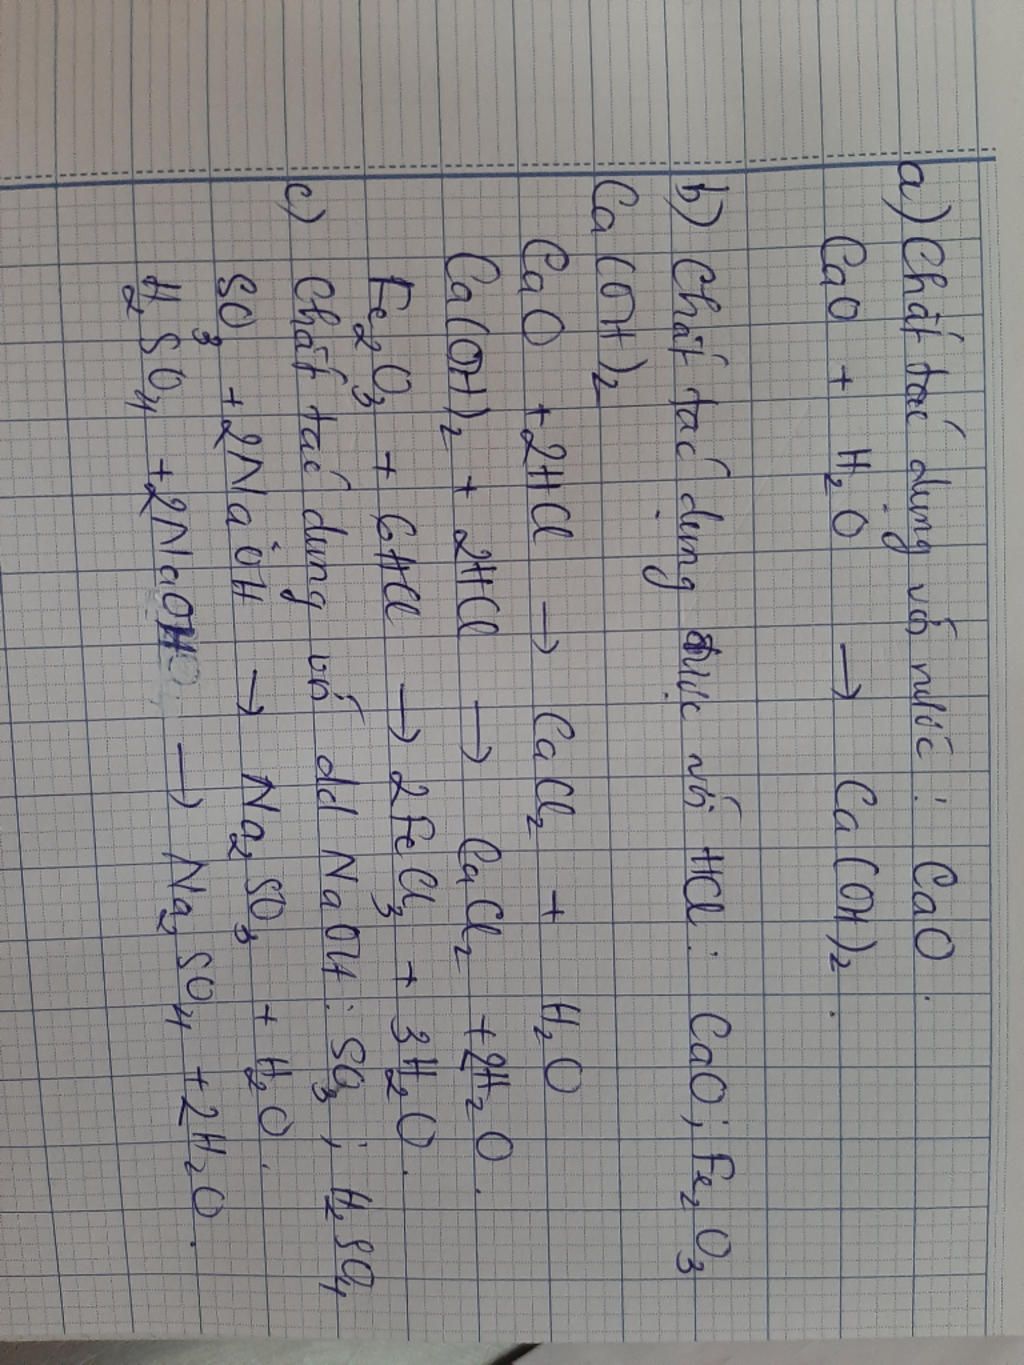 a) Chất tác dụng với nước : CaO.
CaO + H₂O → Ca(OH)₂.
b) Chất tác dụng được với HCl: CaO; Fe₂O₃
Ca(OH)₂
CaO + 2HCl → CaCl₂ + H₂O
Ca(OH)₂ + 2HCl → CaCl₂ + 2H₂O.
Fe₂O₃ + 6HCl → 2FeCl₃ + 3H₂O.
c) Chất tác dụng với dd NaOH: SO₃; H₂SO₄
SO₃ + 2NaOH → Na₂SO₃ + H₂O.
H₂SO₄ + 2NaOH → Na₂SO₄ + 2H₂O.